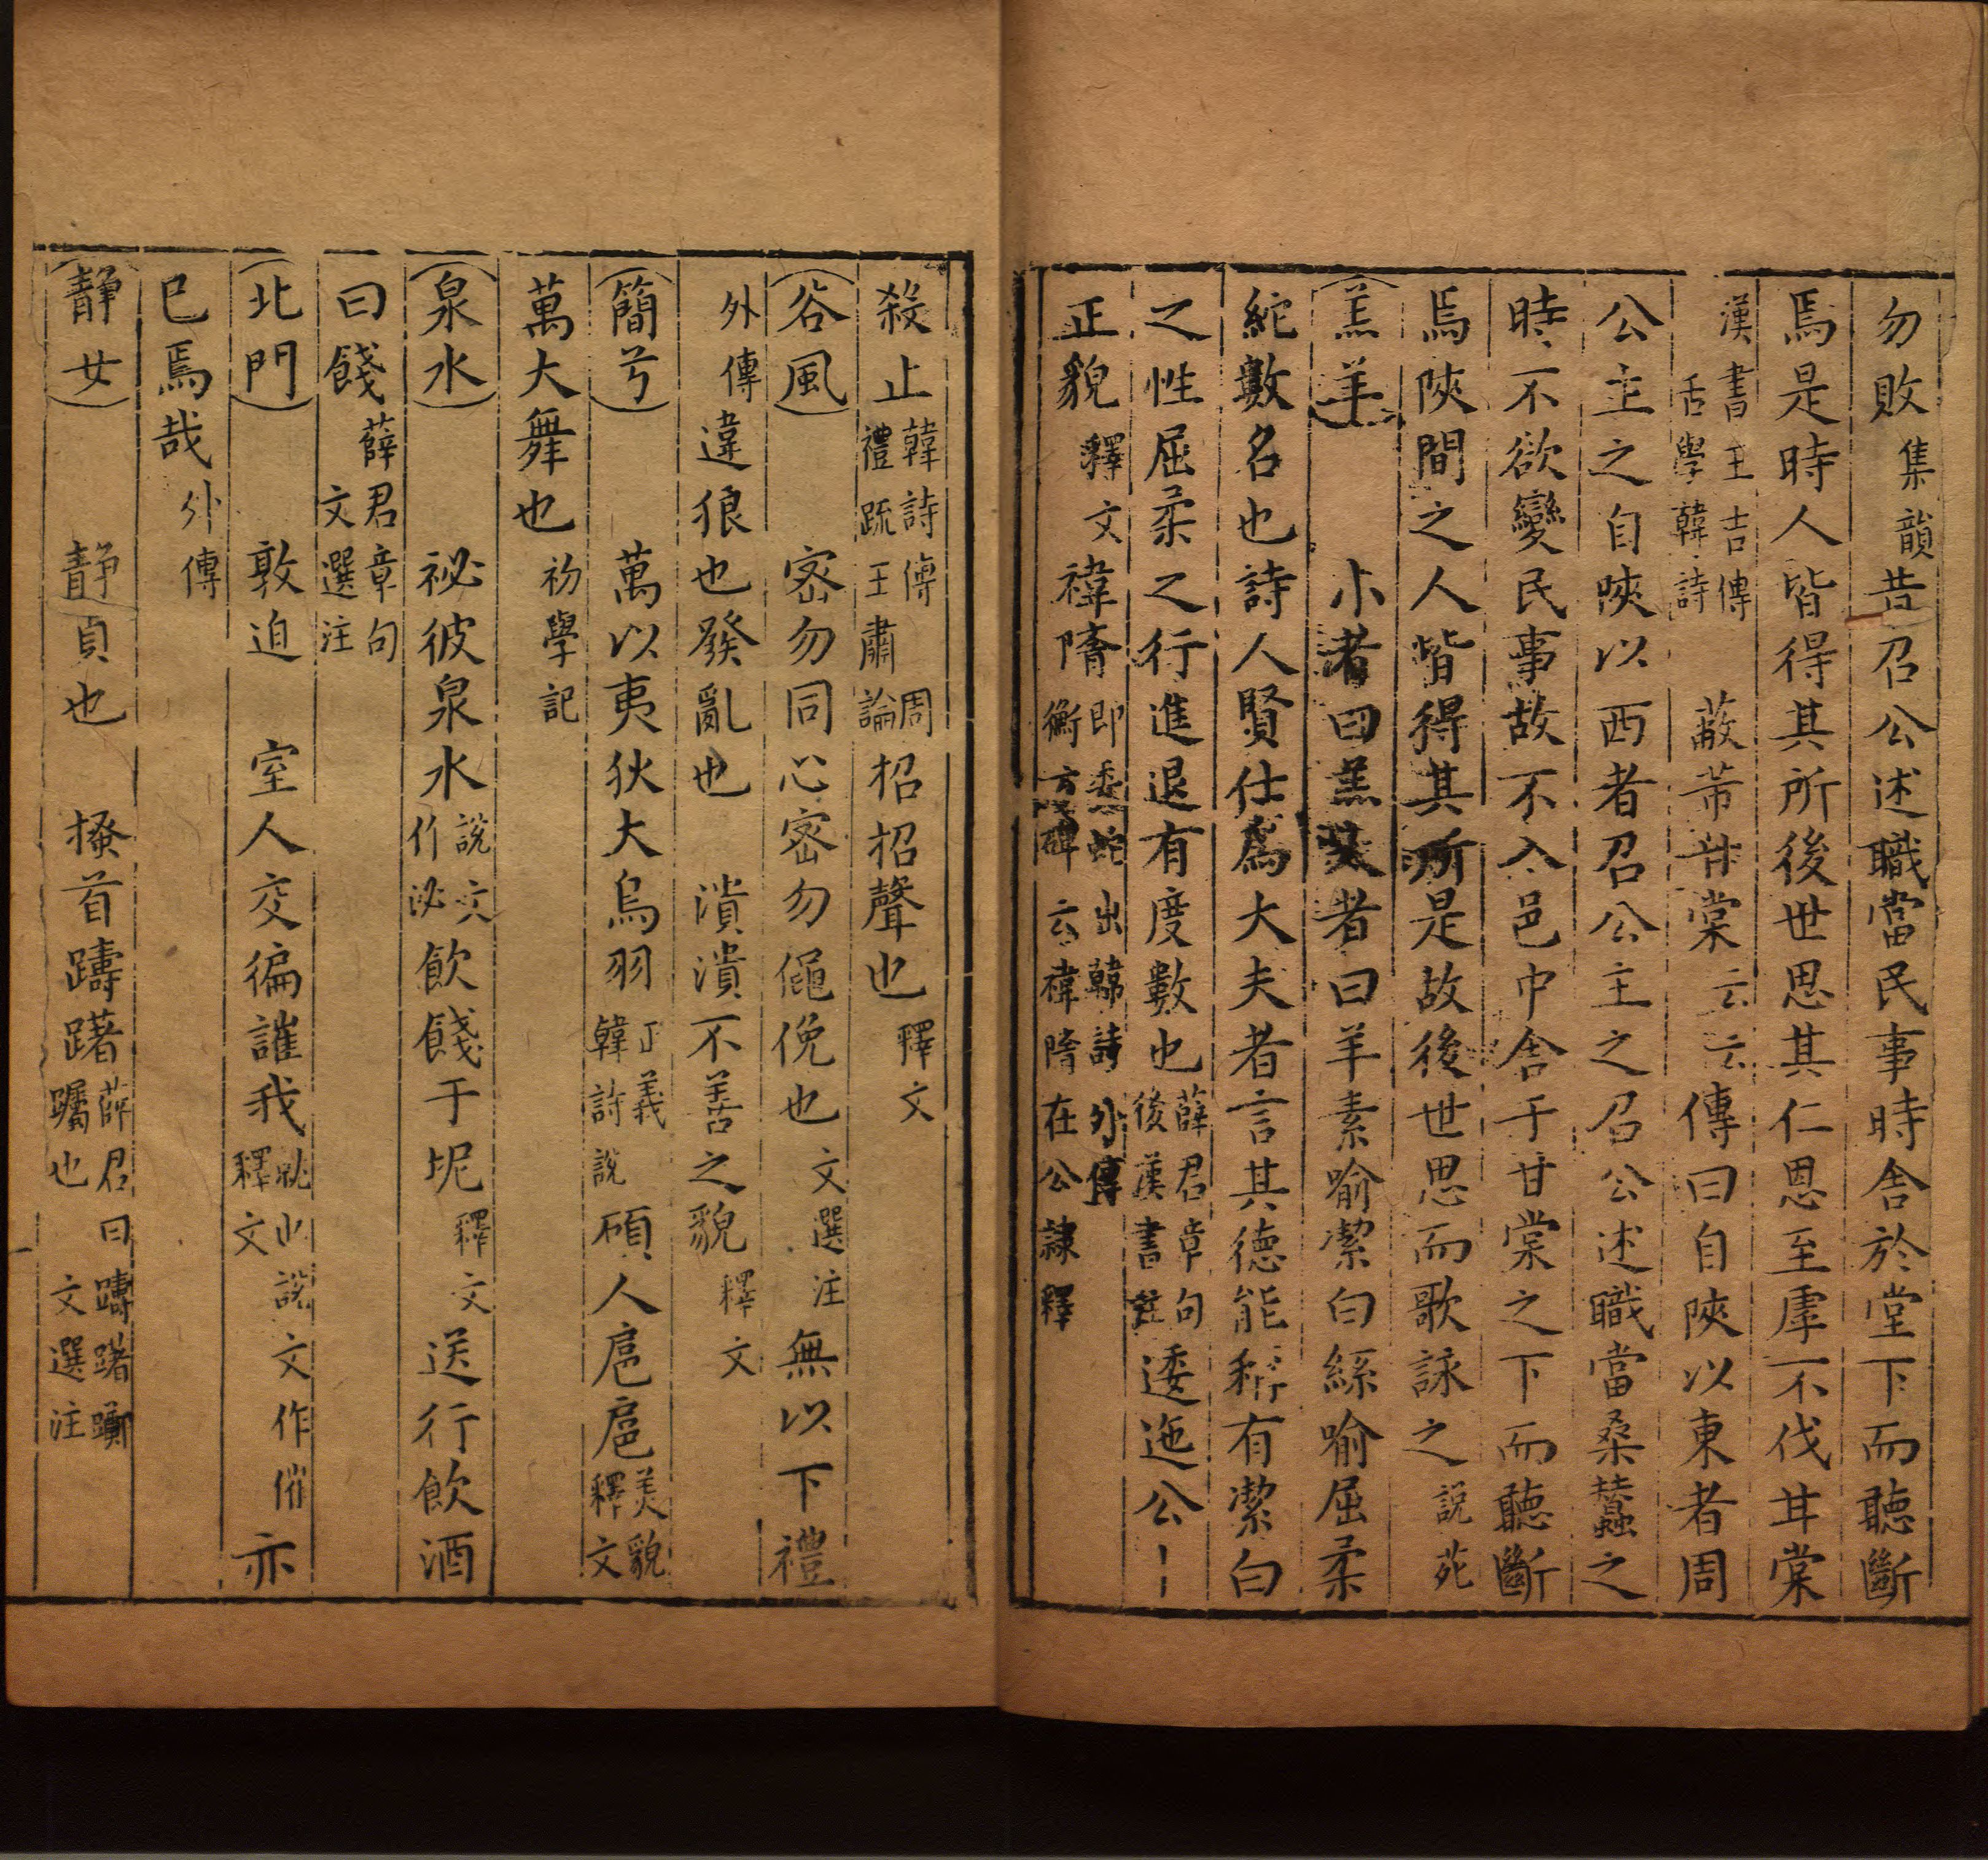 勿敗集韻昔召公述職當民事時舍於堂下而聽斷
焉是時人皆得其所後世思其仁恩至虖不伐甘棠
漢書王吉傳吉學韓詩蔽芾甘棠云云傳曰自陝以東者周
公主之自陝以西者召公主之召公述職當桑蠶之
時不欲變民事故不入邑中舍于甘棠之下而聽斷
焉陝間之人皆得其所是故後世思而歌詠之說苑
羔羊 小者曰羔大者曰羊素喻潔白絲喻屈柔
紽數名也詩人賢仕爲大夫者言其德能稱有潔白
之性屈柔之行進退有度數也薛君章句後漢書註逶迤公
正貌釋文褘隋即委蛇出韓詩外傳衡方碑云褘隋在公隷釋
殺止韓詩傳周禮疏王肅論招招聲也釋文
谷風 密勿同心密勿僶俛也文選注無以下禮
外傳違狠也發亂也 潰潰不善之貌釋文
簡兮 萬以夷狄大鳥羽正義韓詩説碩人扈扈美貌釋文
萬大舞也初學記
泉水 祕彼泉水説文作泌飲餞于坭釋文送行飲酒
曰餞薛君章句文選注
北門 敦迫 室人交徧讙我就也釋文説文作催亦
已焉哉外傳
静女 静貞也 搔首躊躇薛君曰躊躇躑躅也文選注